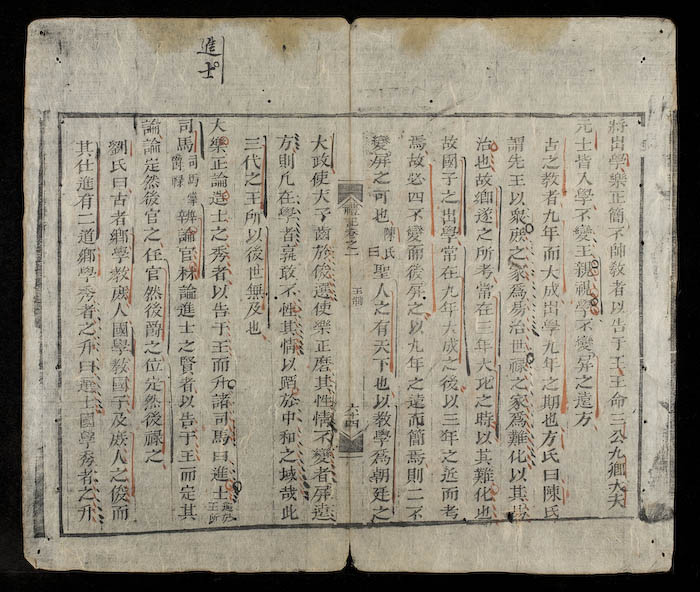 將出學樂正簡不帥教者以告于王王命三公九卿大夫
元士皆入學不變王親視學不變屏之遠方
古之教者九年而大成出學九年之期也方氏曰陳氏
謂先王以衆庶之家爲易治世祿之家爲難化以其易
治也故鄉遂之所考常在三年大比之時以其難化也
故國子之出學常在九年大成之後以三年之近而考
焉故必四不變而後屏之以九年之遠而簡焉則二不
變屏之可也陳氏曰聖人之有天下也以教學爲朝廷之
禮卷之一 王制 六十四
大政使天下齒於俊選使樂正磨其性情不變者屏遠
方則凡在學者孰敢不性其情以陷於中和之域哉此
三代之王所以後世無及也
進士
大樂正論造士之秀者以告于王而升諸司馬曰進士進於王所
司馬司馬掌爵祿辨論官材論進士之賢者以告于王而定其
論論定然後官之任官然後爵之位定然後祿之
劉氏曰古者鄉學教庶人國學教國子及庶人之俊而
其仕進有二道鄉學秀者之升曰進士國學秀者之升